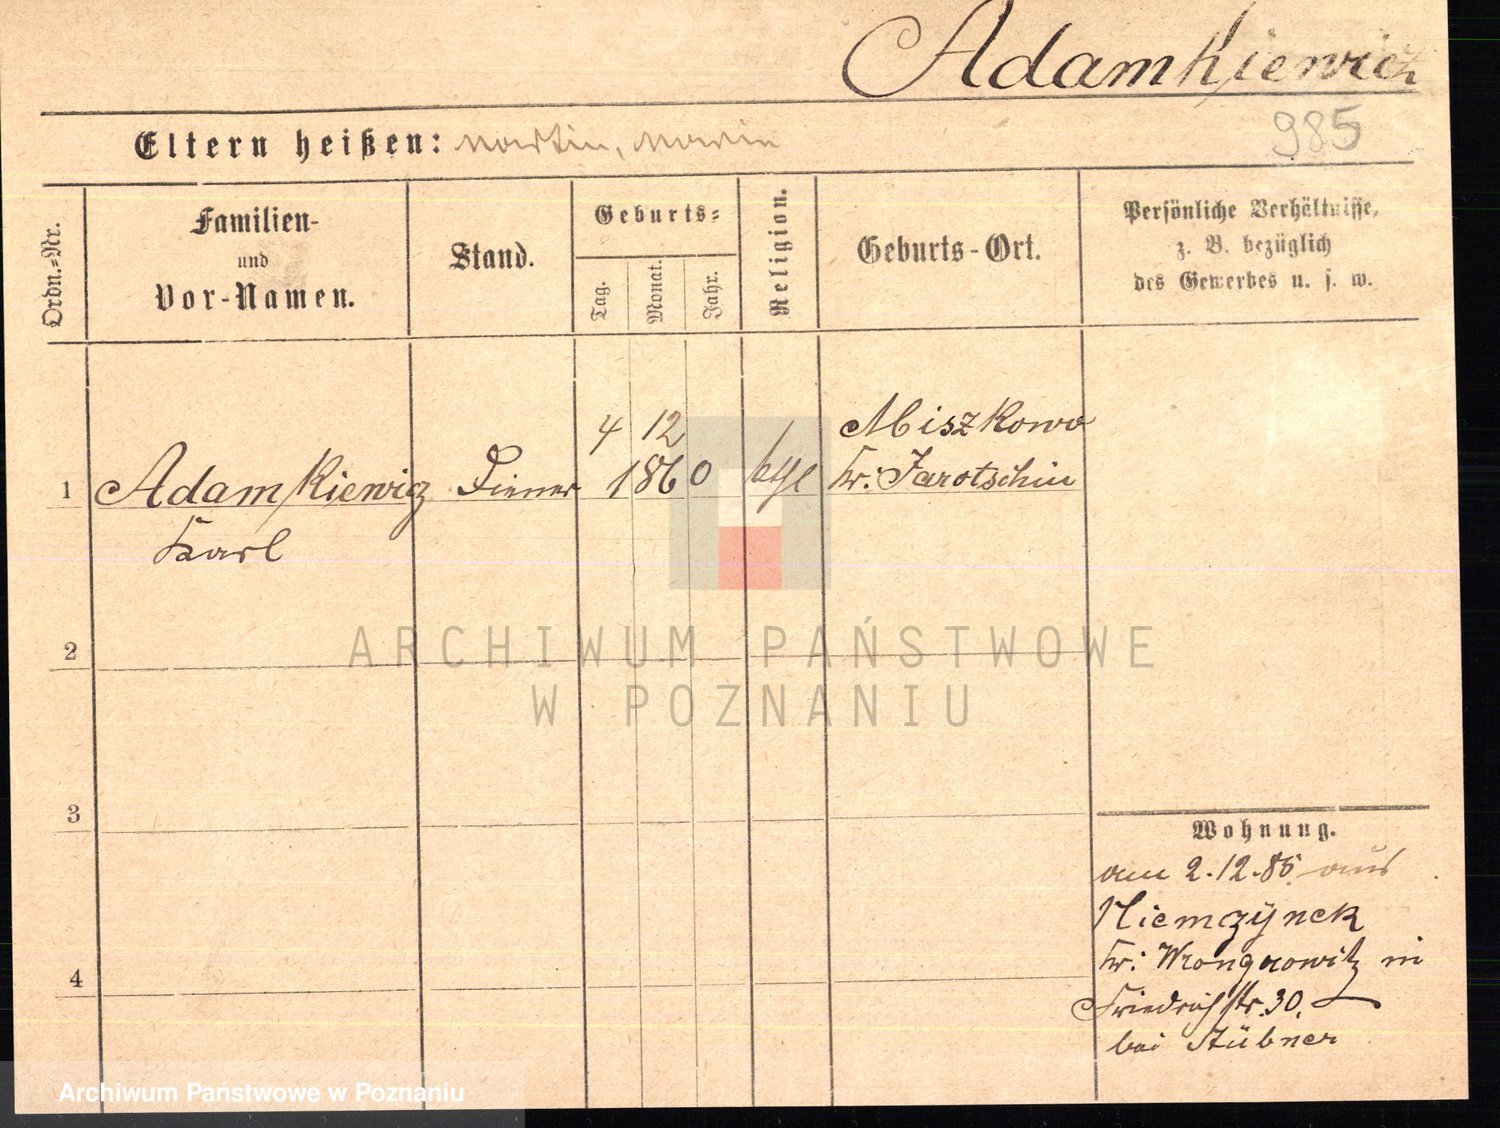 Adamkiewicz
985
Eltern heißen: Martin, Maria
Ordn.-Nr.
Familien-
und
Vor-Namen.
Stand.
Geburts-
Tag.
Monat.
Jahr.
Religion.
Geburts-Ort.
Persönliche Verhältnisse,
z. B. bezüglich
des Gewerbes u. s. w.
1
Adamkiewicz
Karl
Diener
4 12
1860
kthl
Miszkowo
Kr: Jarotschin
2
3
4
Wohnung.
am 2.12.85 aus
Niemczÿnek
Kr: Wrongrowitz in
Friedrichstr. 30.
bei Stübner
ARCHIWUM PAŃSTWOWE
W POZNANIU
Archiwum Państwowe w Poznaniu